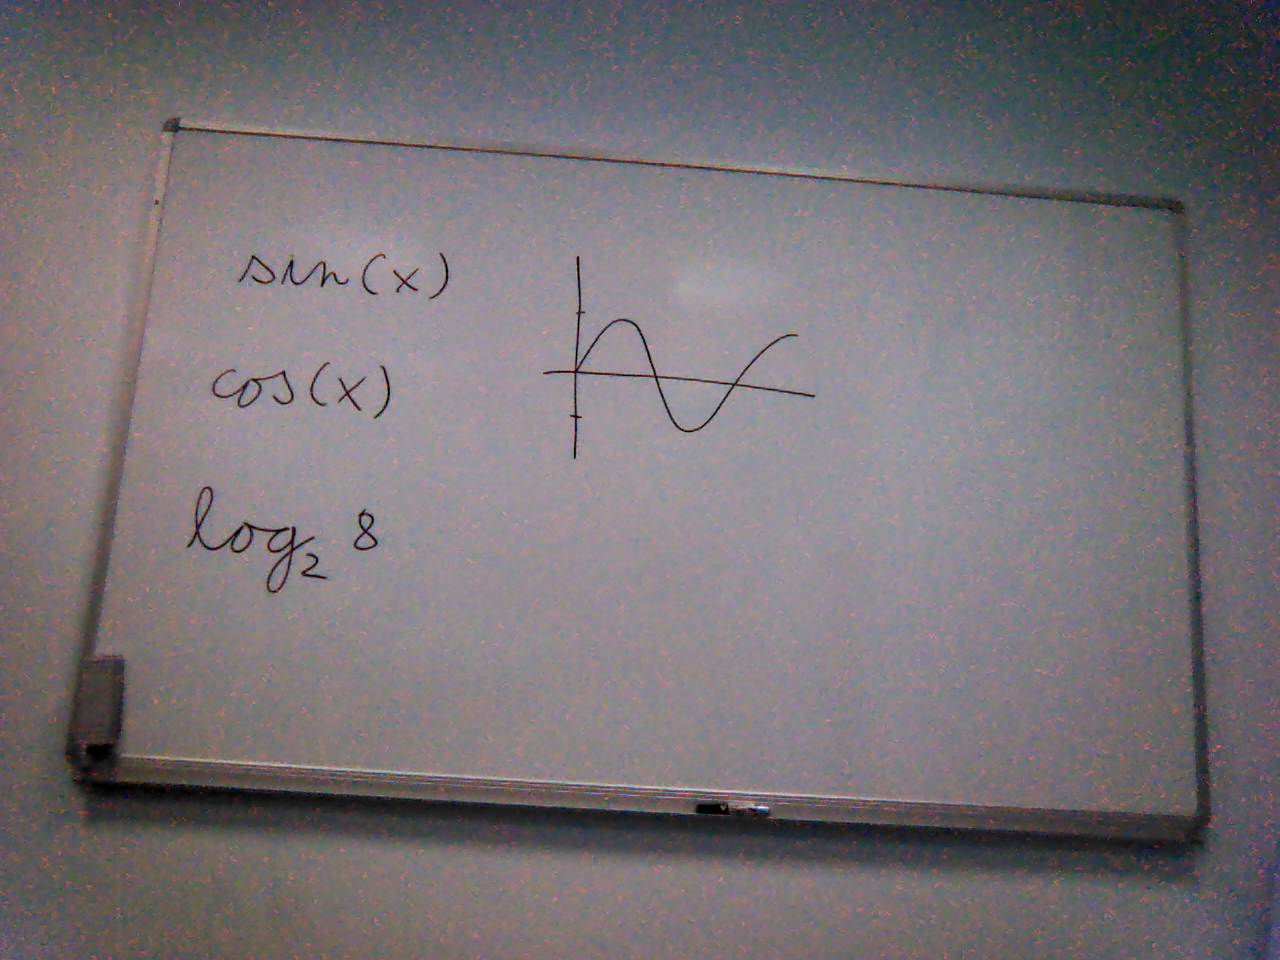 sin(x)
cos(x)
log₂ 8